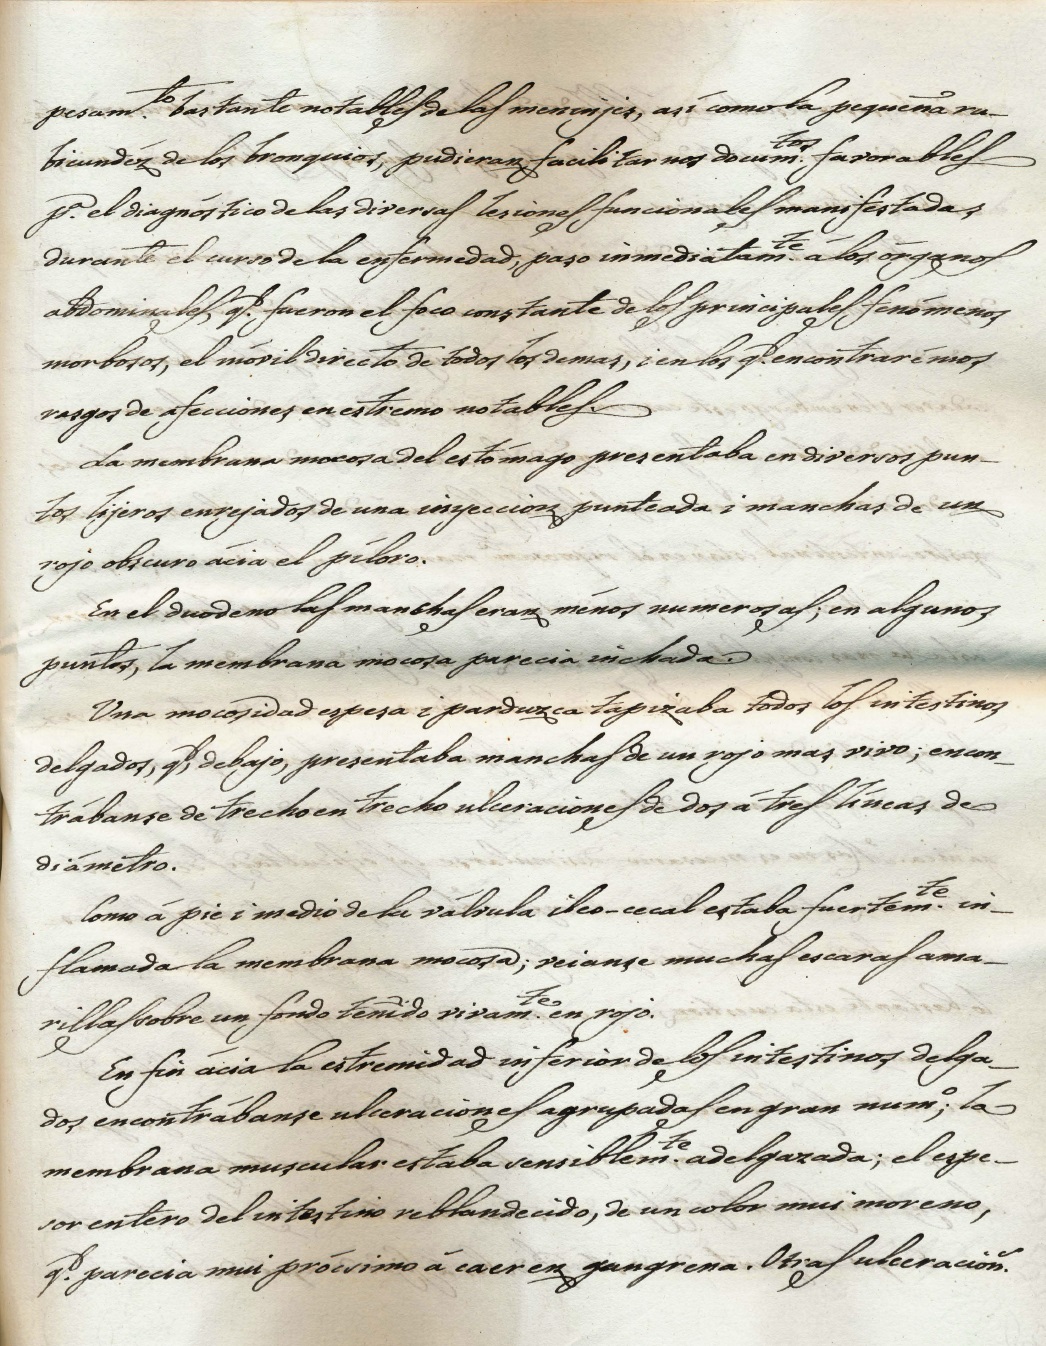 pesam.to bastante notables de las meninjes, así como la pequeña ru-
bicundéz de los bronquios, pudieran facilitarnos docum.tos favorables
p.a el diagnóstico de las diversas lesiones funcionales manifestadas
durante el curso de la enfermedad, paso inmediatam.te á los órganos
abdominales, q.e fueron el foco constante de los principales fenómenos
morbosos, el móvil directo de todos los demas, i en los q.e encontrarémos
rasgos de afecciones en estremo notables.
La membrana mocosa del estómago presentaba en diversos pun-
tos lijeros enrejados de una inyeccion punteada i manchas de un
rojo obscuro ácia el píloro.
En el duodeno las manchas eran ménos numerosas; en algunos
puntos, la membrana mocosa parecia inchada.
Una mocosidad espesa i parduzca tapizaba todos los intestinos
delgados, q.e, debajo, presentaba manchas de un rojo mas vivo; encon-
trábanse de trecho en trecho ulceraciones de dos á tres líneas de
diámetro.
Como á pie i medio de la válvula ileo-cecal estaba fuertem.te in-
flamada la membrana mocosa; veianse muchas escaras ama-
rillas sobre un fondo teñido vivam.te en rojo.
En fin ácia la estremidad inferior de los intestinos delga-
dos encontrábanse ulceraciones agrupadas en gran núm.o; la
membrana muscular estaba sensiblem.te adelgazada; el espe-
sor entero del intestino reblandecido, de un color mui moreno,
q.e parecia mui prócsimo á caer en gangrena. Otras ulceracion.s